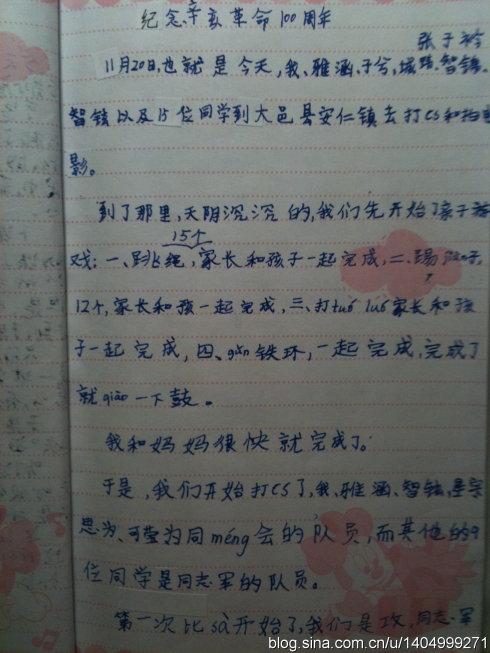 纪念辛亥革命100周年
张子衿
11月20日,也就是今天,我、雅涵、子兮、智铱、
智铱以及15位同学到大邑县安仁镇去打CS和拍电
影。
到了那里,天阴沉沉的,我们先开始了亲子游
15个
戏:一、跳绳,家长和孩子一起完成,二、踢
12个,家长和孩一起完成,三、打tuó luó家长和孩
子一起完成,四、gǔn铁环,一起完成,完成了
就qiāo一下鼓。
我和妈妈很快就完成了。
于是,我们开始打CS了,我、雅涵、智铱、
思为、可莹为同méng会的队员,而其他的9
位同学是同志军的队员。
第一次比sài开始了,我们是攻,同志军
blog.sina.com.cn/u/1404999271